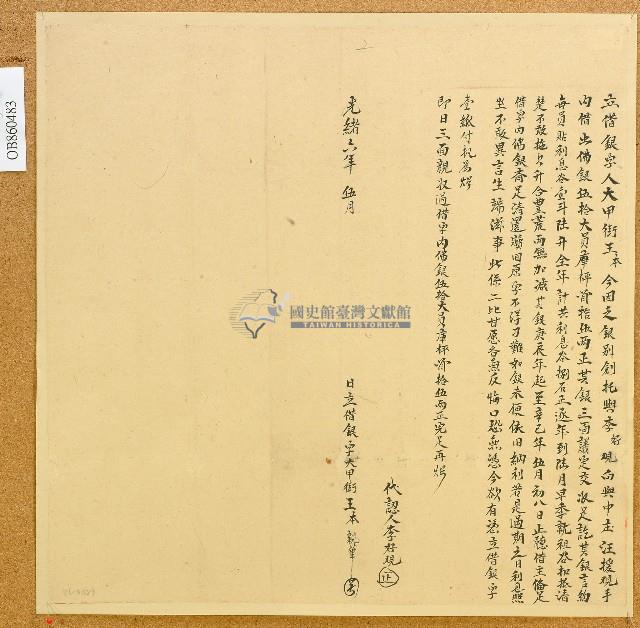 立借銀字人大甲街王本今因乏銀別創托與李好觀向與中庄汪援觀手
內借出佛銀伍拾大員庫秤肆拾伍兩正其銀三面議定交收足訖其銀言約
每員貼利息谷壹斗陆升全年計共利息谷捌石正逐年到陆月早季就租谷扣抵清
楚不敢拖欠升合豐荒兩無加減其銀庚辰年起至辛巳年伍月初八日止聽借主備足
借字內佛銀齊足清還贖回原字不得刁難如銀未便依旧納利若是過期之日利息照
坐不敢異言生端滋事此係二比甘愿各無反悔口恐無憑今欲有憑立借銀字
壹紙付執為炤
即日三面親收過借字內佛銀伍拾大員庫秤肆拾伍兩正完足再炤
代認人李好觀
光緒六年 伍月
日立借銀字大甲街王本親筆
國史館臺灣文獻館
TAIWAN HISTORICA
OB860483